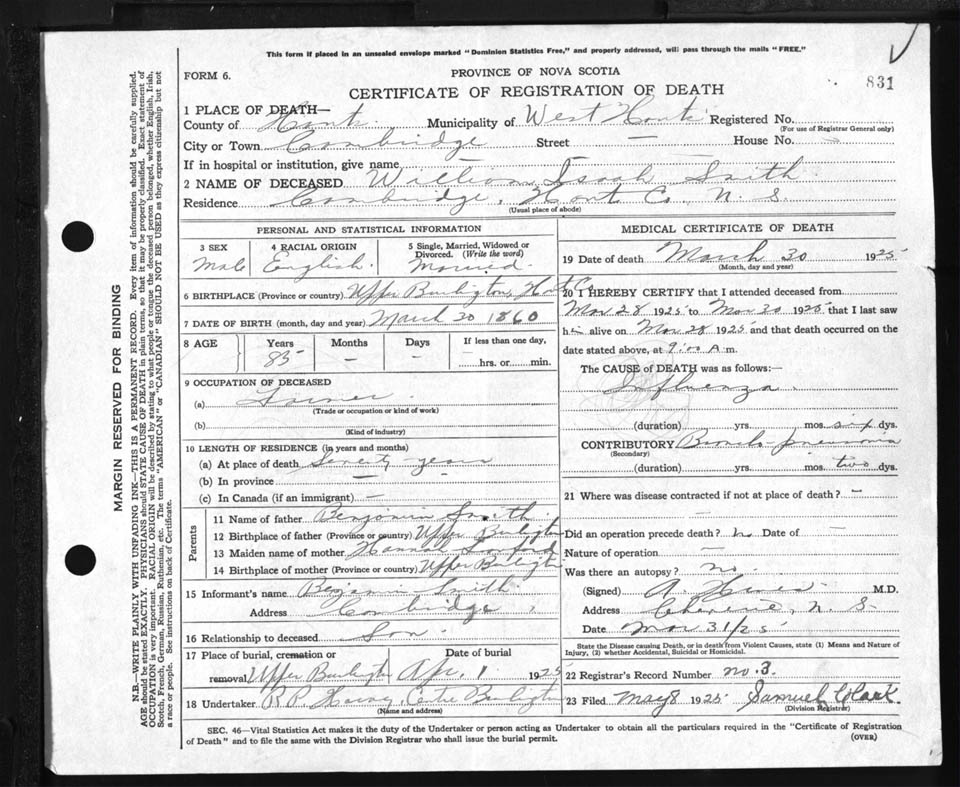 This form if placed in an unsealed envelope marked "Dominion Statistics Free," and properly addressed, will pass through the mails "FREE."
FORM 6.
PROVINCE OF NOVA SCOTIA
831
CERTIFICATE OF REGISTRATION OF DEATH
1 PLACE OF DEATH—
County of Hants Municipality of West Hants Registered No.
(For use of Registrar General only)
City or Town Cambridge Street — House No. —
If in hospital or institution, give name —
2 NAME OF DECEASED William Isaah Smith
Residence Cambridge, Hant Co., N. S.
(Usual place of abode)
PERSONAL AND STATISTICAL INFORMATION
3 SEX Male
4 RACIAL ORIGIN English.
5 Single, Married, Widowed or Divorced. (Write the word) Married.
6 BIRTHPLACE (Province or country) Upper Burlington, H
7 DATE OF BIRTH (month, day and year) March 20 1860
8 AGE Years Months Days If less than one day,
85 — — hrs. or min.
9 OCCUPATION OF DECEASED
(a) Farmer
(Trade or occupation or kind of work)
(b)
(Kind of industry)
10 LENGTH OF RESIDENCE (in years and months)
(a) At place of death Seventy years
(b) In province —
(c) In Canada (if an immigrant) —
Parents
11 Name of father Benjamin Smith.
12 Birthplace of father (Province or country) Upper Burlington
13 Maiden name of mother Hannah Sanford
14 Birthplace of mother (Province or country) Upper Burlington
15 Informant's name Benjamin Smith
Address Cambridge,
16 Relationship to deceased Son.
17 Place of burial, cremation or removal Upper Burlington
Date of burial Apr. 1 1925
18 Undertaker R.P. Harvey, Centre Burlington
(Name and address)
MEDICAL CERTIFICATE OF DEATH
19 Date of death March 30 1925
(Month, day and year)
20 I HEREBY CERTIFY that I attended deceased from
Mar 28 1925 to Mar 30 1925 that I last saw
him alive on Mar 28 1925 and that death occurred on the
date stated above, at 9:00 A.m.
The CAUSE of DEATH was as follows:—
Influenza
(duration) yrs. mos. six dys.
CONTRIBUTORY Broncho pneumonia
(Secondary)
(duration) yrs. mos. two dys.
21 Where was disease contracted if not at place of death? —
Did an operation precede death? no Date of —
Nature of operation —
Was there an autopsy? no.
(Signed) A. M.D.
Address N. S.
Date Mar 31/25
State the Disease causing Death, or in death from Violent Causes, state (1) Means and Nature of Injury, (2) whether Accidental, Suicidal or Homicidal.
22 Registrar's Record Number no. 3.
23 Filed May 8 1925 Samuel Clark.
(Division Registrar)
SEC. 46—Vital Statistics Act makes it the duty of the Undertaker or person acting as Undertaker to obtain all the particulars required in the "Certificate of Registration
of Death" and to file the same with the Division Registrar who shall issue the burial permit.
(OVER)
MARGIN RESERVED FOR BINDING
N.B.—WRITE PLAINLY WITH UNFADING INK—THIS IS A PERMANENT RECORD. Every item of information should be carefully supplied.
AGE should be stated EXACTLY. PHYSICIANS should STATE CAUSE OF DEATH in plain terms, so that it may be properly classified. Exact statement of
OCCUPATION is very important. RACIAL ORIGIN will be described by stating to what people or tongue the deceased person belonged, whether English, Irish,
Scotch, French, German, Russian, Ruthenian, etc. The terms "AMERICAN" or "CANADIAN" SHOULD NOT BE USED as they express citizenship but not
a race or people. See instructions on back of Certificate.